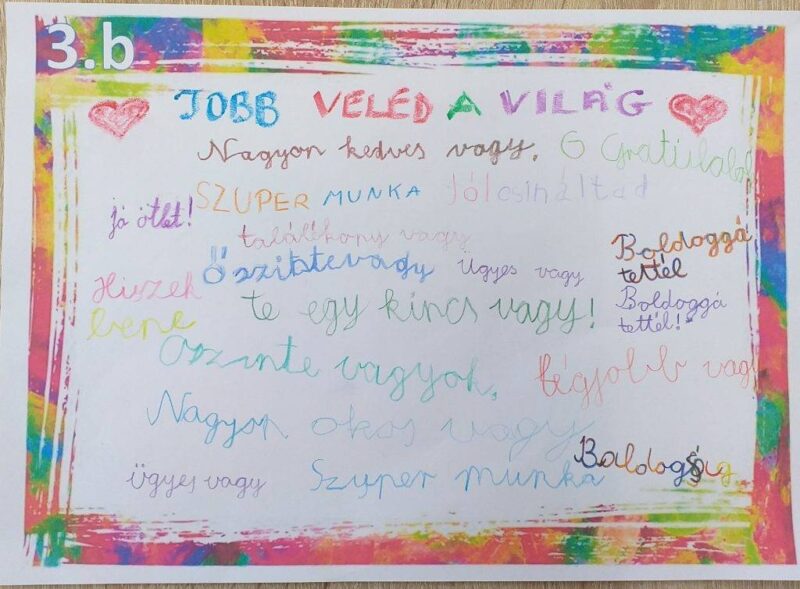 3.b
JOBB VELED A VILÁG
Nagyon kedves vagy. G Gratulálok
SZUPER MUNKA Jól csináltad
jó ötlet!
találékony vagy
Boldoggá
tettél
Őszitstevagy ügyes vagy
Hiszek
bene
te egy kincs vagy!
Boldoggá
tettél!
Oszinte vagyok. légjobb vagy
Nagyon okos vagy
Baldogság
ügyes vagy Szuper munka